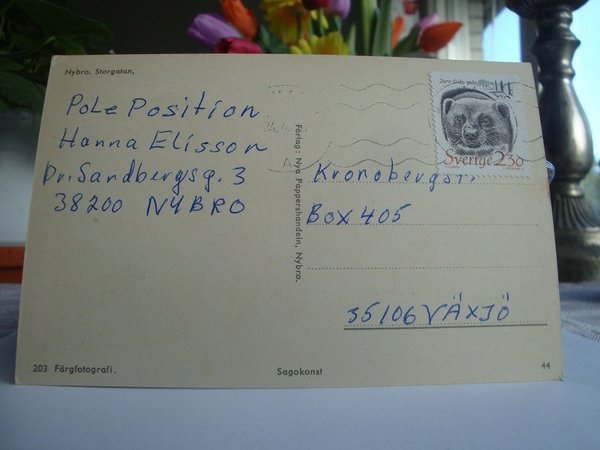 Nybro, Storgatan,
Pole Position
Hanna Elisson
Dr. Sandbergsg. 3
38200 NYBRO
Förlag: Nya Pappershandeln, Nybro.
Sverige 2.30
Box 405
35106 VÄXJÖ
203 Färgfotografi.
Sagokonst
44